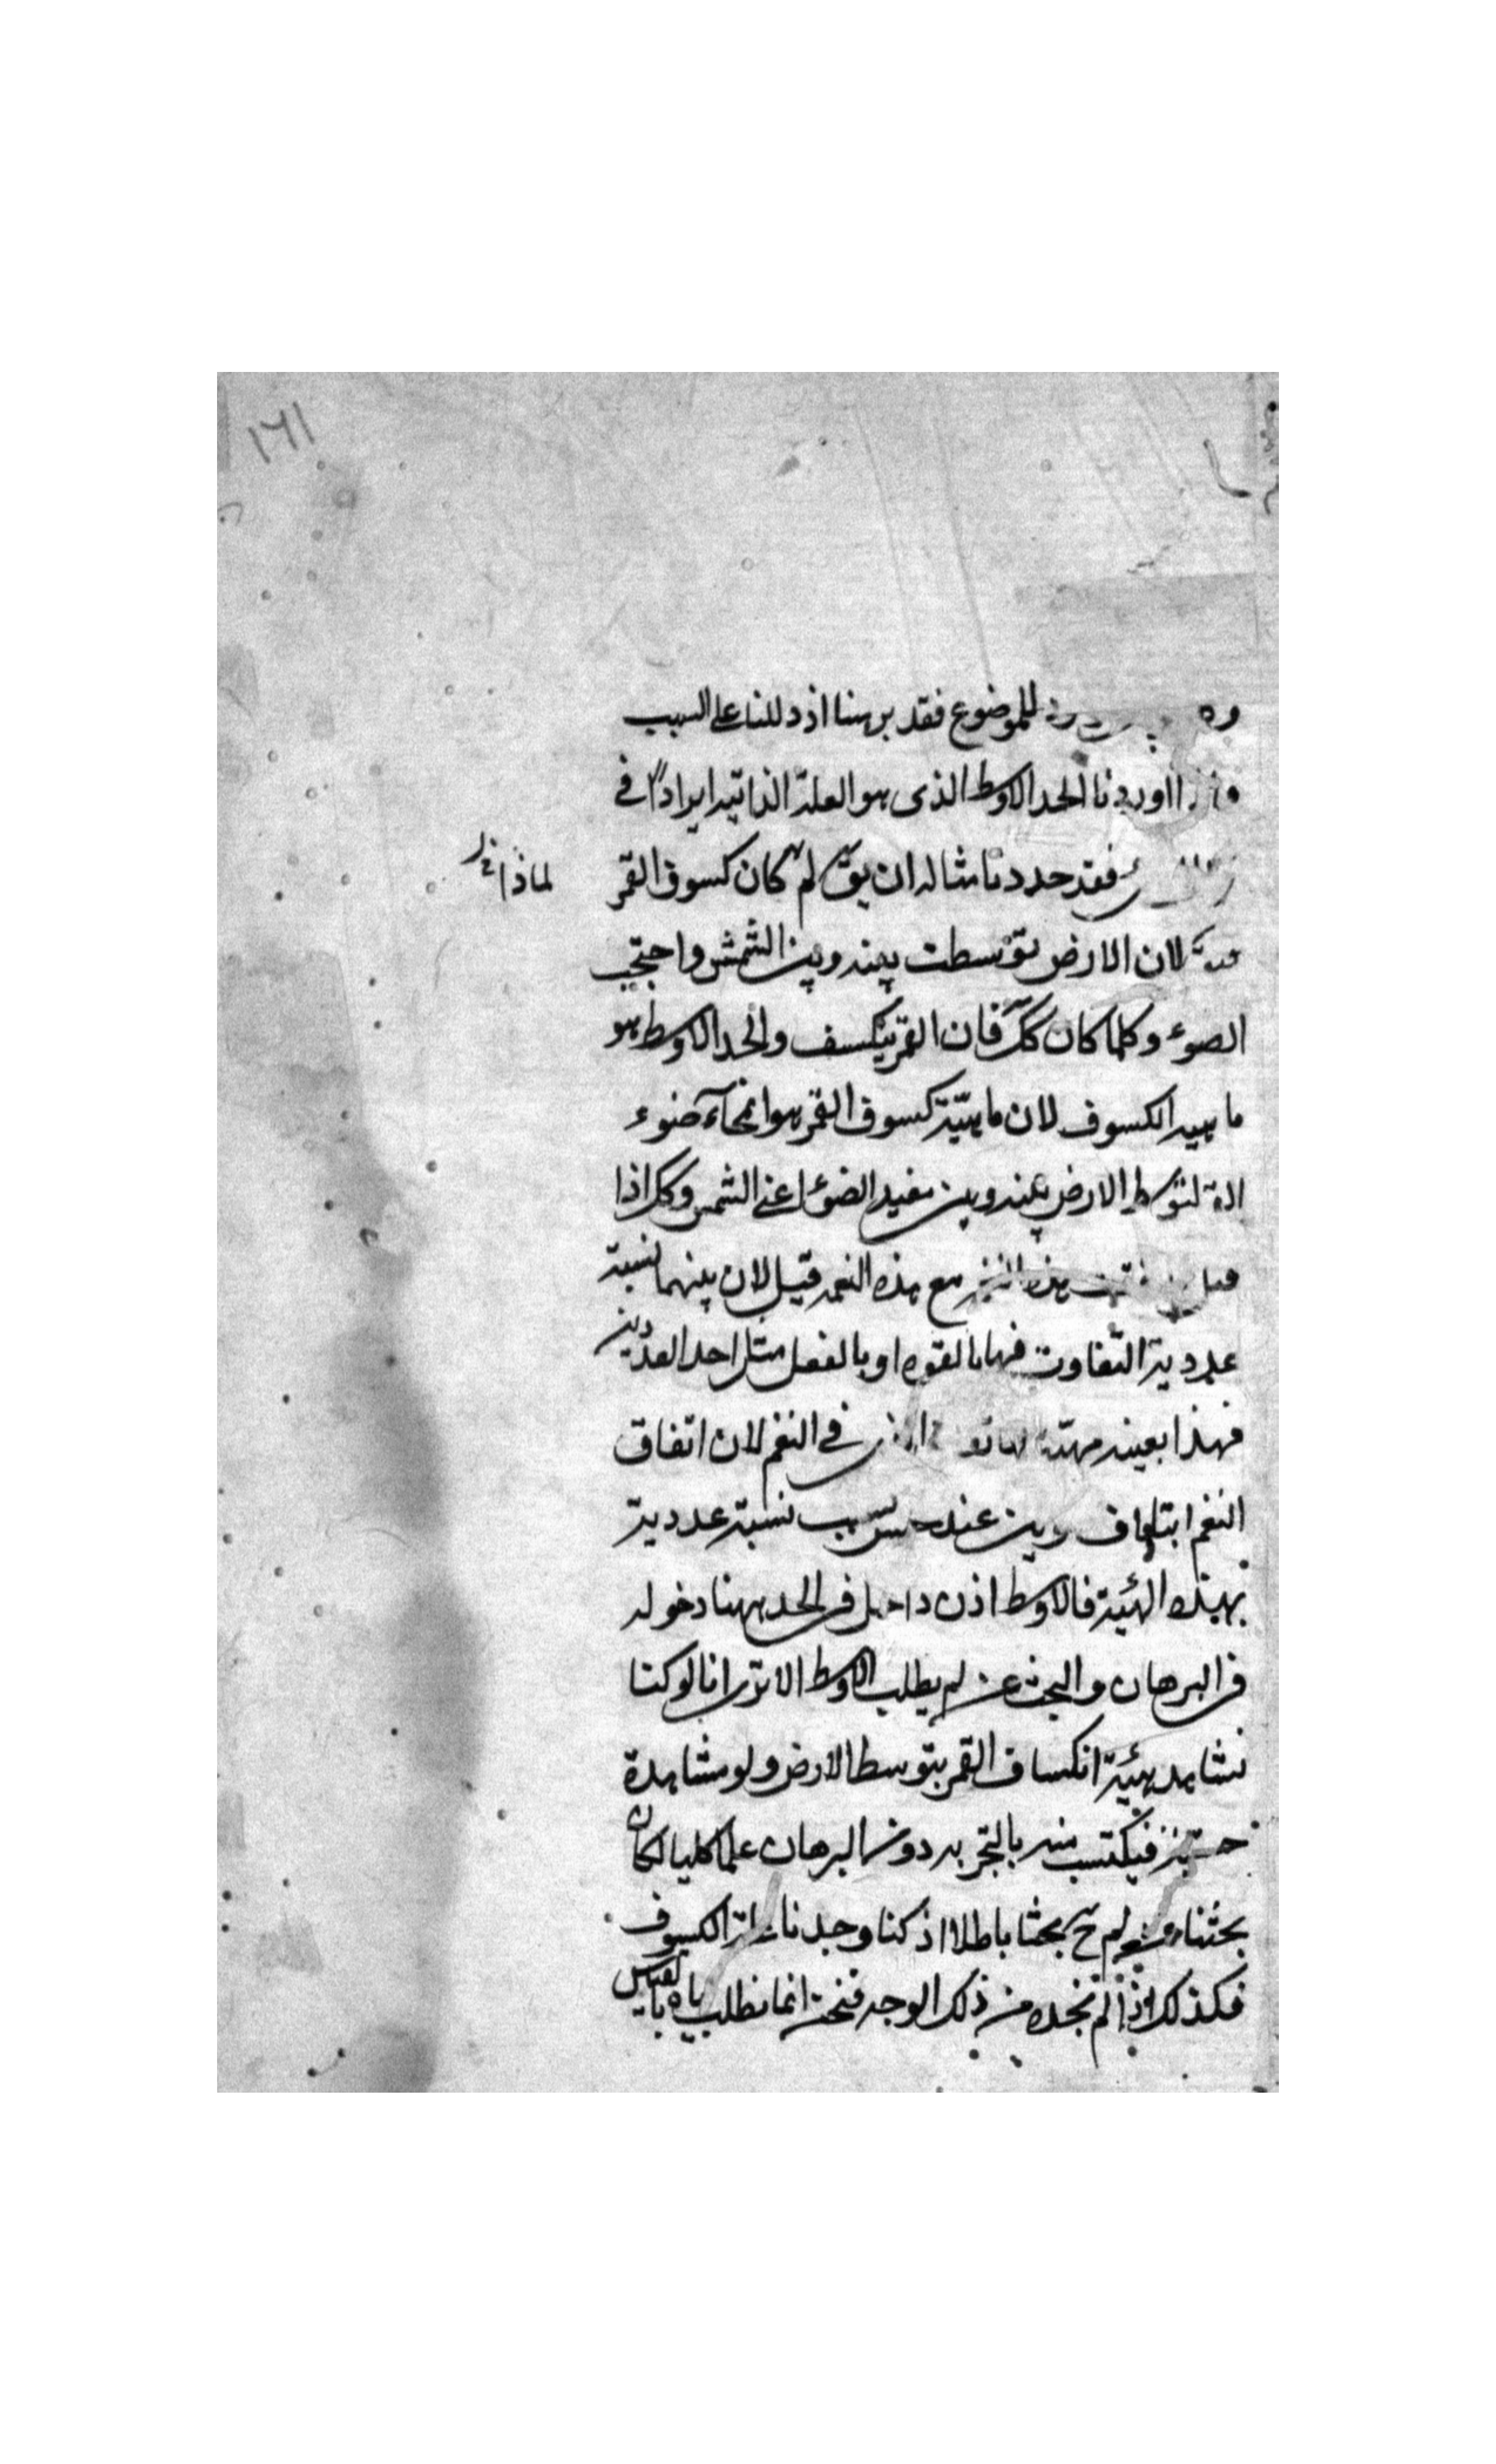 ١٦١
للموضوع فقد برهنا اذ دللنا على السبب
اوردنا الحد الاوسط الذى هو العلة الذاتية ايرادا فى
فقد حددنا مثاله ان يقَ لم كان كسوف القمر
لماذا خ
لان الارض توسطت بينه وبين الشمس واحتجب
الضوء وكلما كان كك فان القمر ينكسف والحد الاوسط هو
ماهية الكسوف لان ماهيّة كسوف القمر هو انمحآء ضوء
لتوسط الارض بينه وبين مفيد الضوء اعنى الشمس وكك اذا
هذه النغمة مع هذه النغمة قيل لان بينهما نسبة
عددية التفاوت فيها بالقوه او بالفعل مثل احد العددين
فهذا بعينه فى النغم لان اتفاق
النغم نسبة عددية
بهيئة فالاوسط اذن داخل فى الحد ههنا دخوله
فى البرهان والبحث عن لم يطلب الاوسط الا ترى انا لو كنا
نشاهد هيئة انكساف القمر بتوسط الارض ولو مشاهدة
فيكتسب منه بالتجربه دون البرهان علما كليا لكان
بحثنا لم ح بحثا باطلا اذ كنا وجدنا الكسوف
فكذلك اذا لم نجده من ذلك الوجه فنحن انما نطلبه بالقياس